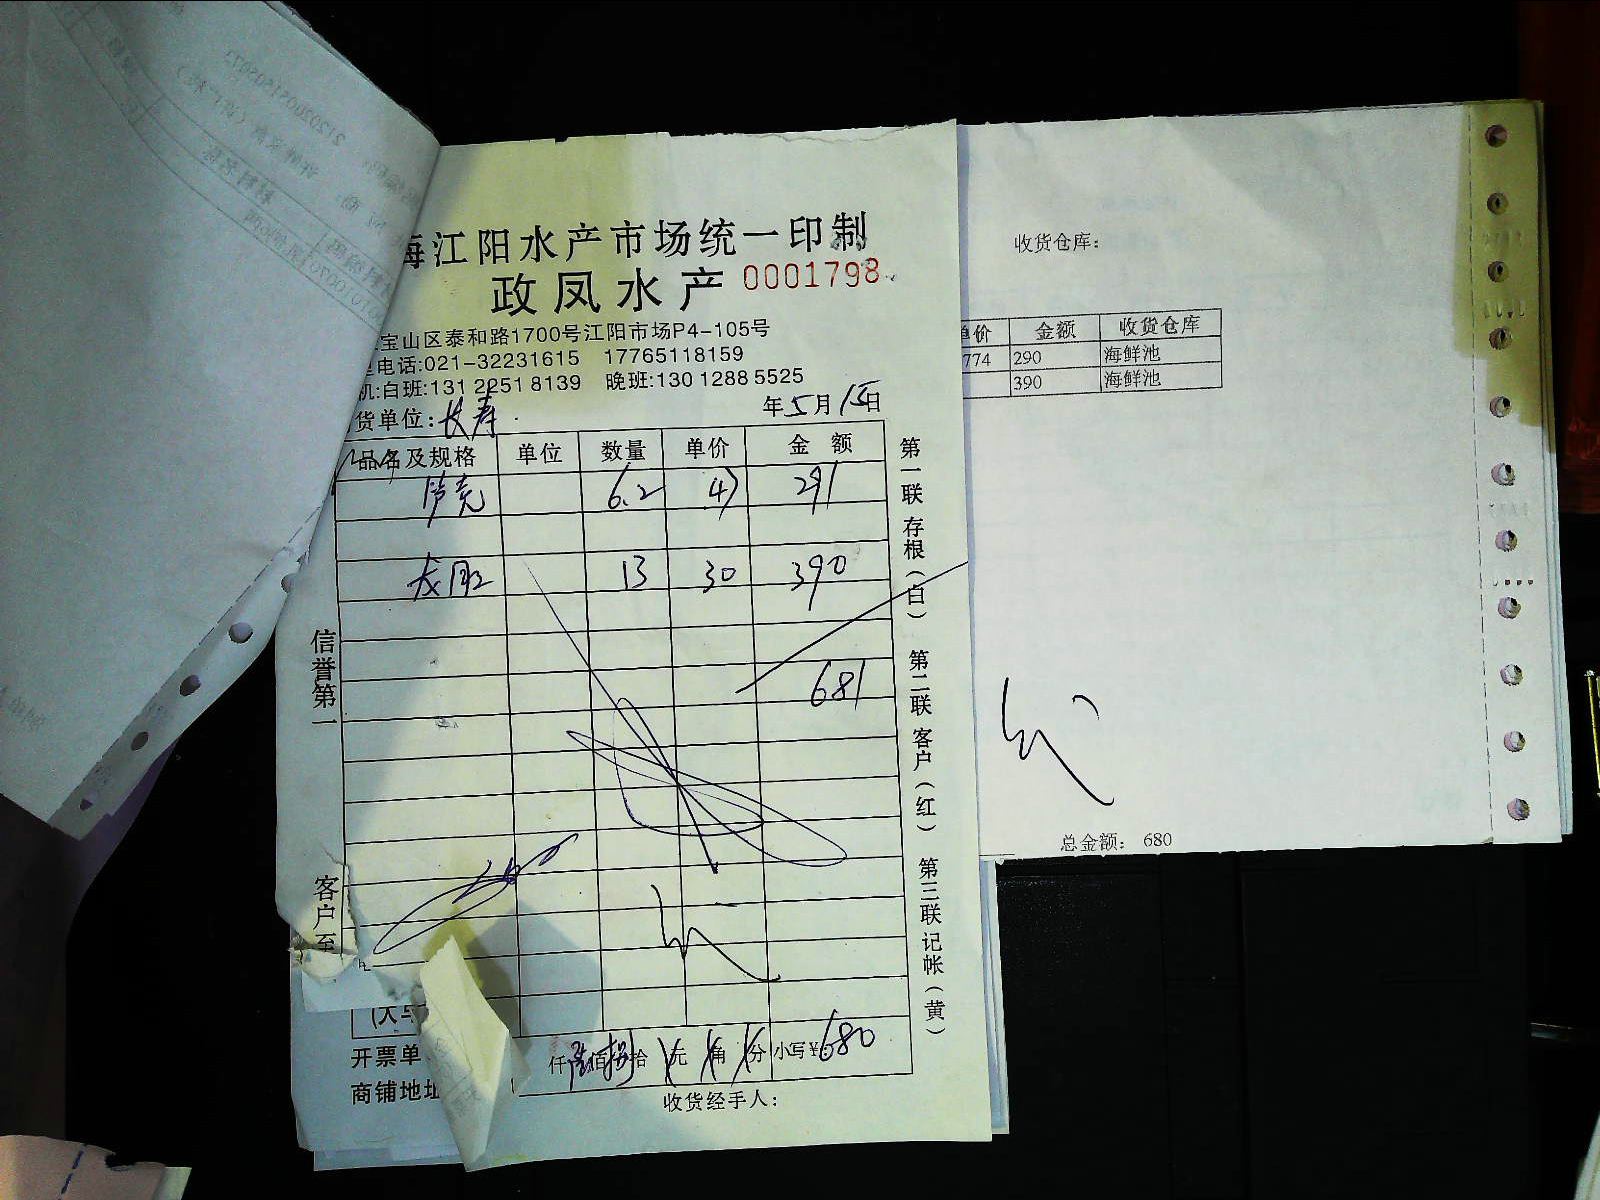 海江阳水产市场统一印制
政凤水产 0001798
宝山区泰和路1700号江阳市场P4-105号
电话:021-32231615 17765118159
机:白班:131 2251 8139 晚班:130 1288 5525
货单位:长寿
年5月15日
品名及规格 单位 数量 单价 金 额
6.2 47 291
13 30 390
681
仟陆佰捌拾 元 角 分 小写¥:680
开票单
商铺地址
收货经手人:
信誉第一
客户至
第一联 存根(白) 第二联 客户(红) 第三联 记帐(黄)
收货仓库:
单价 金额 收货仓库
774 290 海鲜池
390 海鲜池
总金额: 680